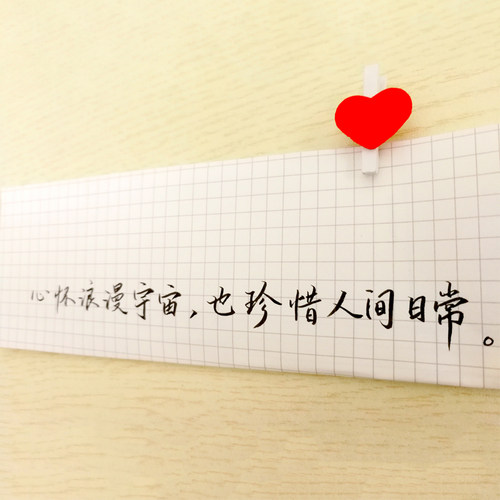 心怀浪漫宇宙，也珍惜人间日常。